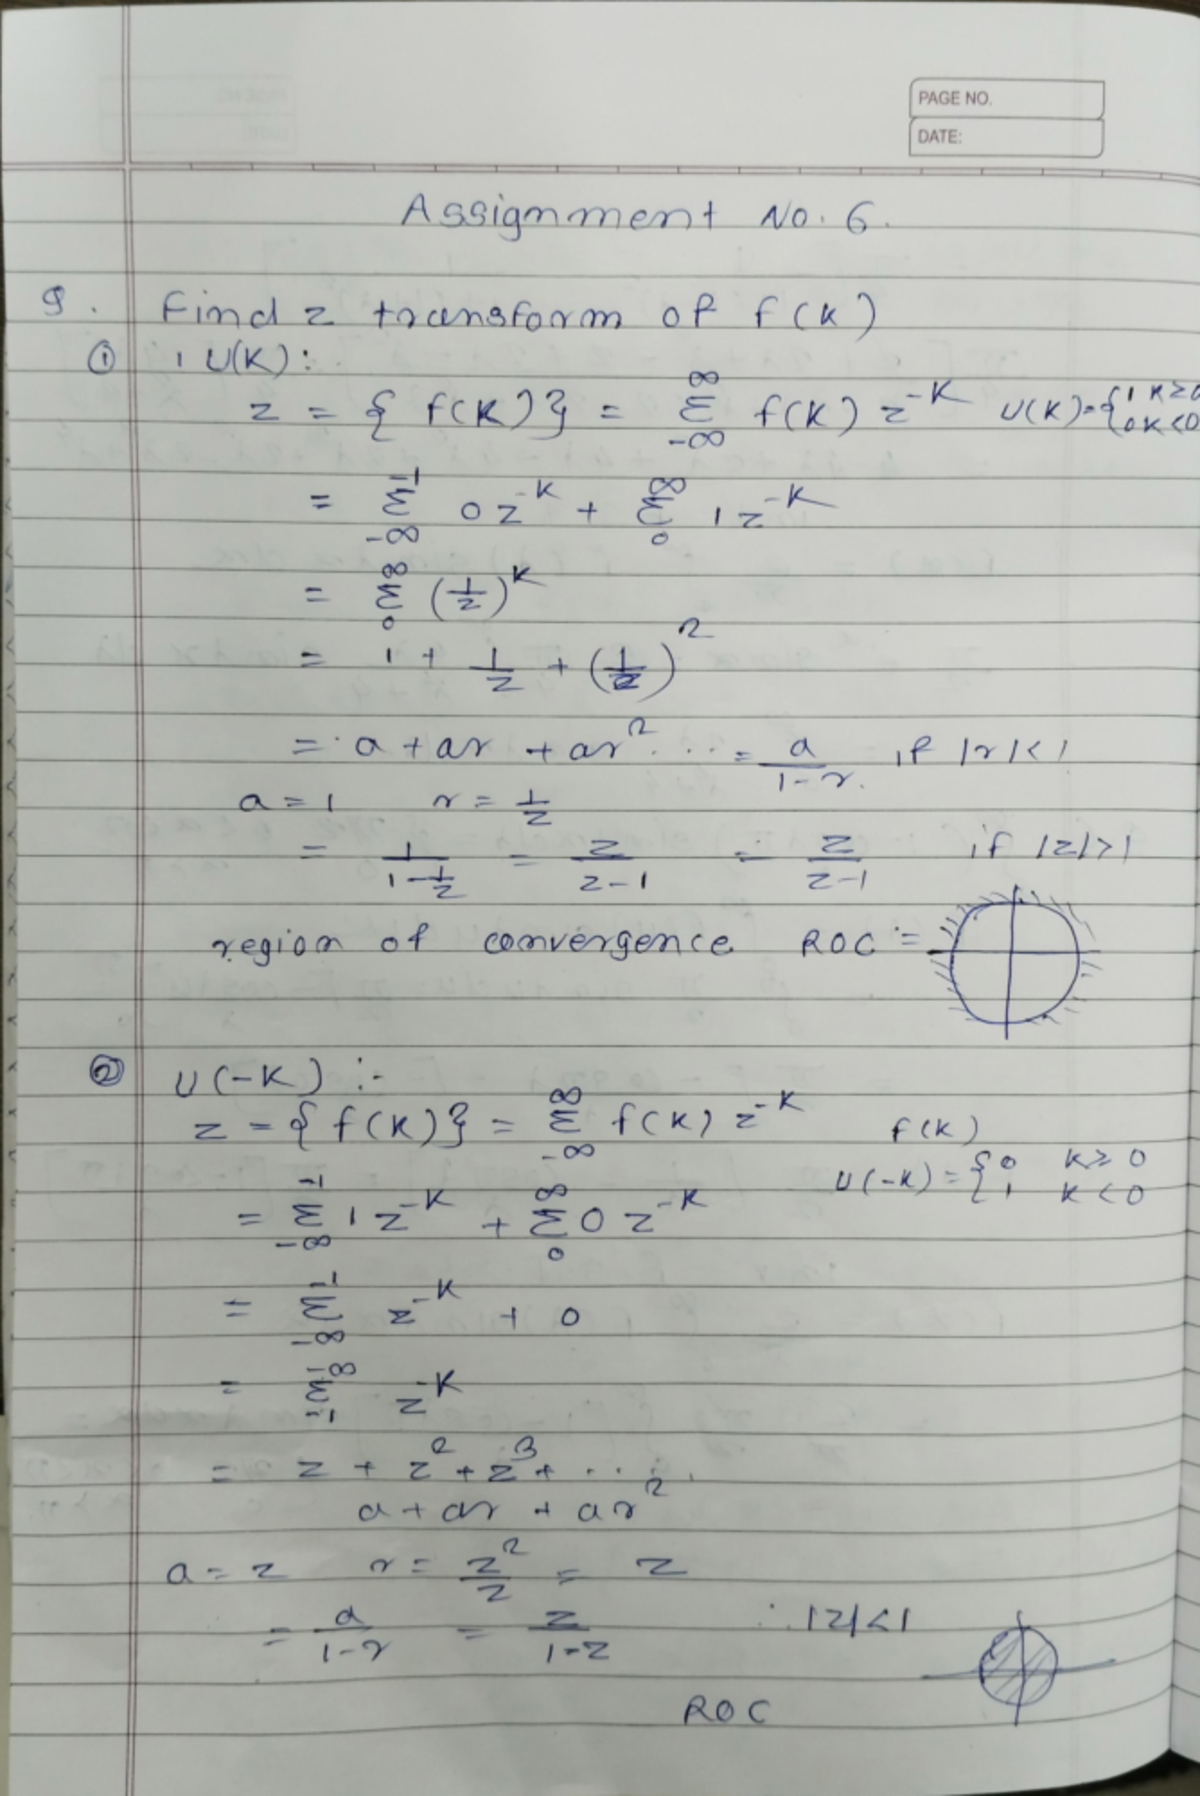 PAGE NO.
DATE:
Assignment No. 6.
Q. Find z transform of f(k)
① 1 U(K):
z = { f(K)} = ∞Σ-∞ f(K) z^-K U(K)={1 K≥0
0 K<0
= -1Σ-∞ 0 z^-K + ∞Σ0 1 z^-K
= ∞Σ0 (1/z)^K
= 1 + 1/z + (1/z)^2
= a + ar + ar^2 ... = a/1-r. if |r|<1
a = 1 r = 1/z
= 1/1-1/z = z/z-1 = z/z-1 if |z|>1
region of convergence ROC =
② U(-K) :-
z = { f(K)} = ∞Σ-∞ f(K) z^-K f(K)
U(-K) = {0 K≥0
1 K<0
= -1Σ-∞ 1 z^-K + ∞Σ0 0 z^-K
= -1Σ-∞ z^-K + 0
= -∞Σ-1 z^-K
= z + z^2 + z^3 + ....
a + ar + ar^2
a = z r = z^2/z = z
= a/1-r = z/1-z ∴ |z|<1
ROC